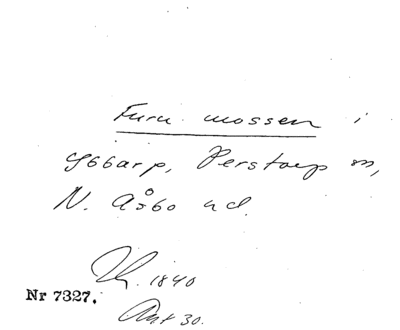 Furu mossen i
Ybbarp, Perstorp sn,
N. Åsbo hd.
Th. 1840
Nr 7327.
Ant 30.